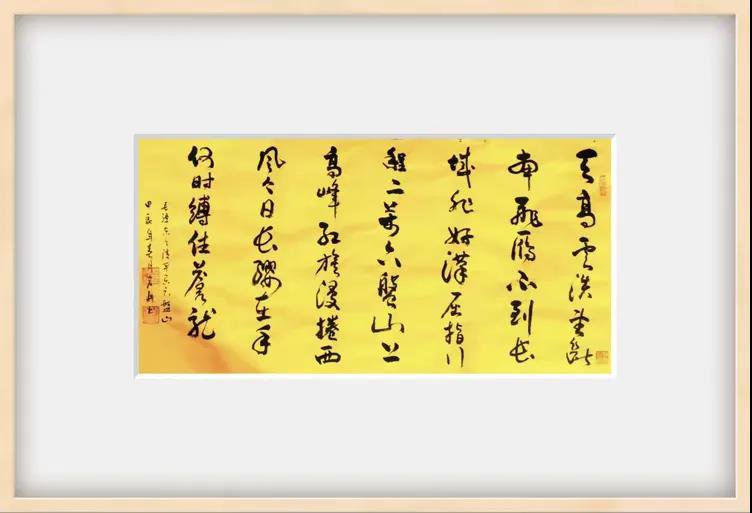 天高云淡望断
南飛鴈不到长
城非好漢屈指行
程二萬六盤山上
高峰红旗漫捲西
风今日长缨在手
何时缚住蒼龙
毛泽东词清平乐六盤山
甲辰年春月